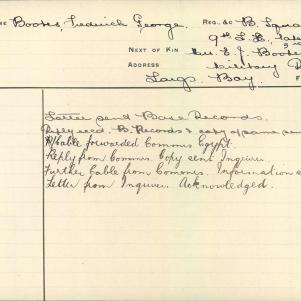 Bootes, Fedrick George. REG. &C B. Squa
9th L.H.
NEXT OF KIN Mrs. E. J. Bootes
ADDRESS Military
Largs Bay.
Letter sent Base Records.
Reply recd. B. Records & copy of same
R/Cable forwarded Commns Egypt.
Reply from Commns. Copy sent Inquirer.
Further Cable from Commns. Information
Letter from Inquirer. Acknowledged.